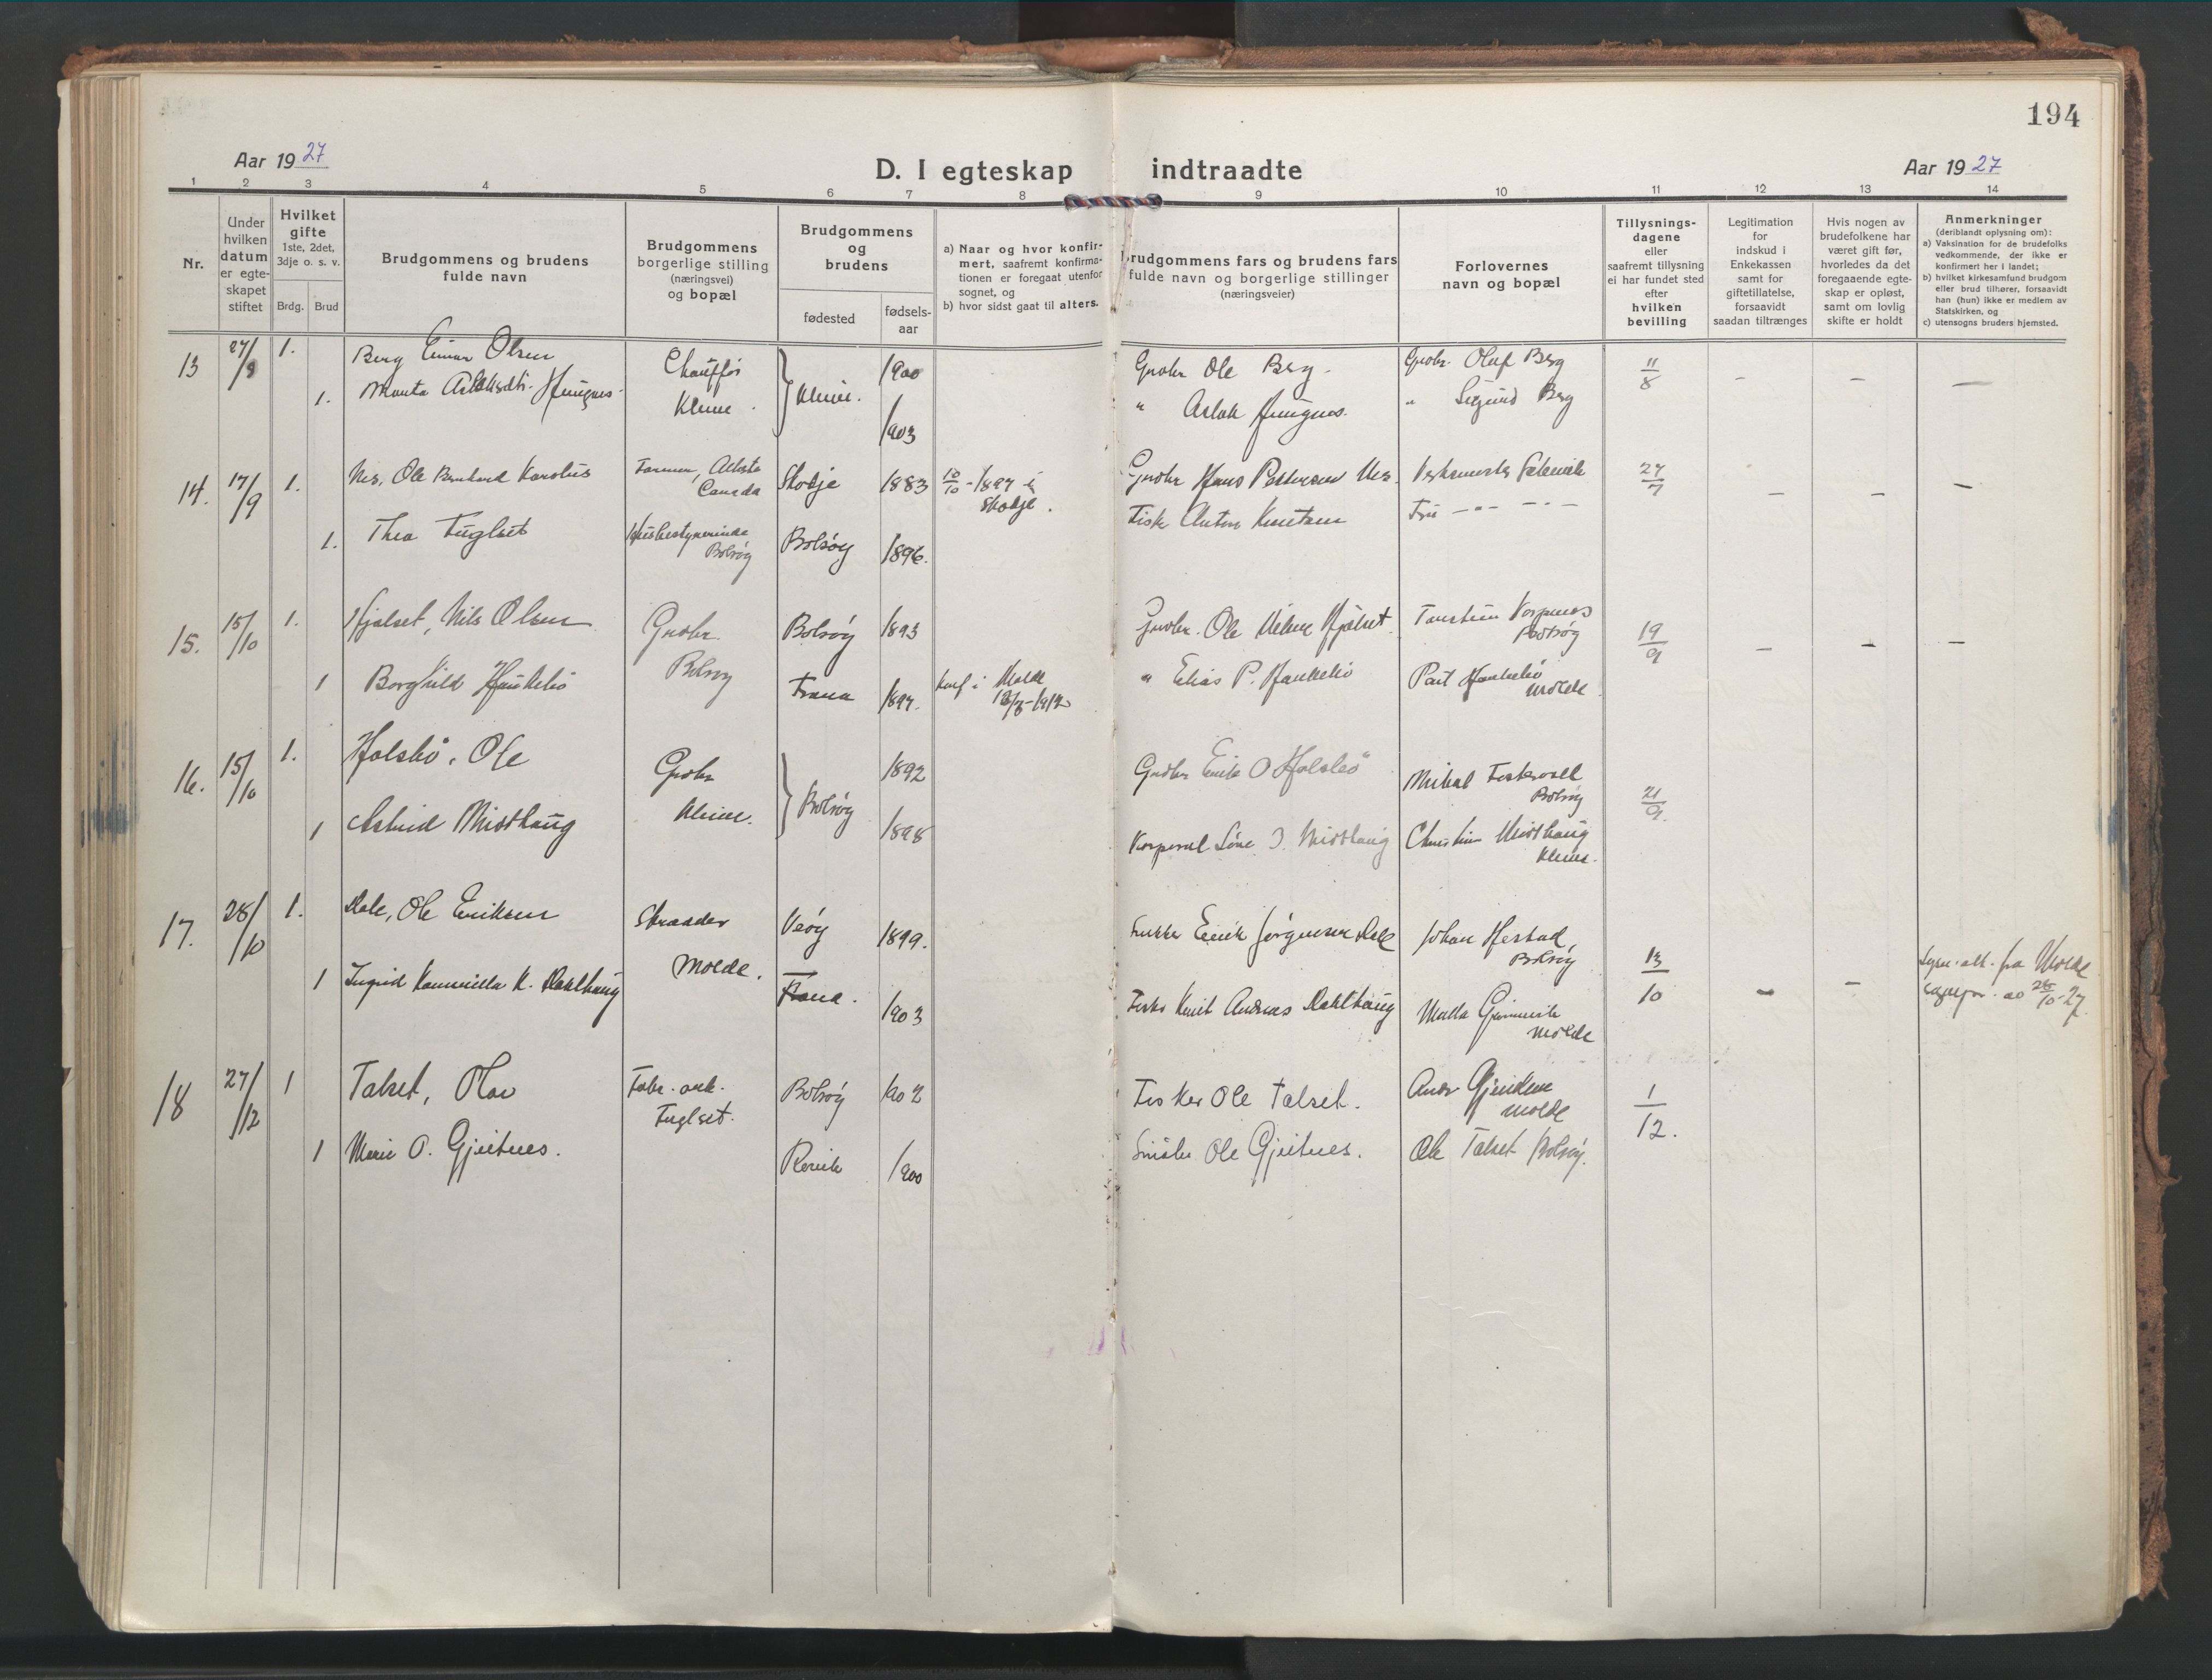 194
Aar 1927
D. I egteskap indtraadte
Aar 1927
1 2 3 4 5 6 7 8 9 10 11 12 13 14
Nr.
Under
hvilken
datum
er egte-
skapet
stiftet
Hvilket
gifte
1ste, 2det,
3dje o. s. v.
Brdg. Brud
Brudgommens og brudens
fulde navn
Brudgommens
borgerlige stilling
(næringsvei)
og bopæl
Brudgommens
og
brudens
fødested
fødsels-
aar
a) Naar og hvor konfir-
mert, saafremt konfirma-
tionen er foregaat utenfor
sognet, og
b) hvor sidst gaat til alters.
Brudgommens fars og brudens fars
fulde navn og borgerlige stillinger
(næringsveier)
Forlovernes
navn og bopæl
Tillysnings-
dagene
eller
saafremt tillysning
ei har fundet sted
efter
hvilken
bevilling
Legitimation
for
indskud i
Enkekassen
samt for
giftetillatelse,
forsaavidt
saadan tiltrænges
Hvis nogen av
brudefolkene har
været gift før,
hvorledes da det
foregaaende egte-
skap er opløst,
samt om lovlig
skifte er holdt
Anmerkninger
(deriblandt oplysning om):
a) Vaksination for de brudefolks
vedkommende, der ikke er
konfirmert her i landet;
b) hvilket kirkesamfund brudgom
eller brud tilhører, forsaavidt
han (hun) ikke er medlem av
Statskirken, og
c) utensogns bruders hjemsted.
13 27/8 1. Berg Einar Olsen Chaufför 1900 Grobr Ole Berg. Grobr. Oluf Berg 11/8 - - -
1. Kleive. Kleive. 1903 " Aslak " Sigurd Berg
14. 17/9 1. Nes, Ole Bernhard Karolus Farmer, Alberta Canada Skodje 1883 10/10 - 1897 i Skodje. Grobr Hans Pettersen Nes. 24/7 - - -
1. Thea Fuglset Husbestyrerinde Bolsøy Bolsøy 1896. Fisk Anton Knutsen Fru -"- -"-
15. 15/10 1. Hjelset, Nils Olsen Grobr. Bolsøy Bolsøy 1893 Grobr. Ole Hjelset Bolsøy 19/9 - - -
1 Borghild Haukebø Fræna 1897. konf i Molde " Elias P. Haukebø Paul Haukebø Molde.
16. 15/10 1. Holsbö, Ole Grobr Kleive. Bolsøy 1892 Grobr Erik O Holsbö Mikal Bolsøy 21/9.
1 Astrid Midthaug 1898 Korporal J. Midthaug Midthaug Kleive.
17. 28/10 1. Dale, Ole Eriksen Skrædder Molde. Veøy 1899. Erik Jørgensen Dale Johan Hestad, Bolsøy 13/10 - -
1 Ingrid K. Dahlhaug Fræna. 1903 Fisker Knut Andreas Dahlhaug Molde
fra Molde
28/10-27
18 27/12 1 Talset, Olav Fabr. arb. Fuglset. Bolsøy 1902 Fisker Ole Talset. Molde 1/12.
1 Marie O. Gjeitnes. Rovik 1900 Ole Gjeitnes. Ole Talset Bolsøy.